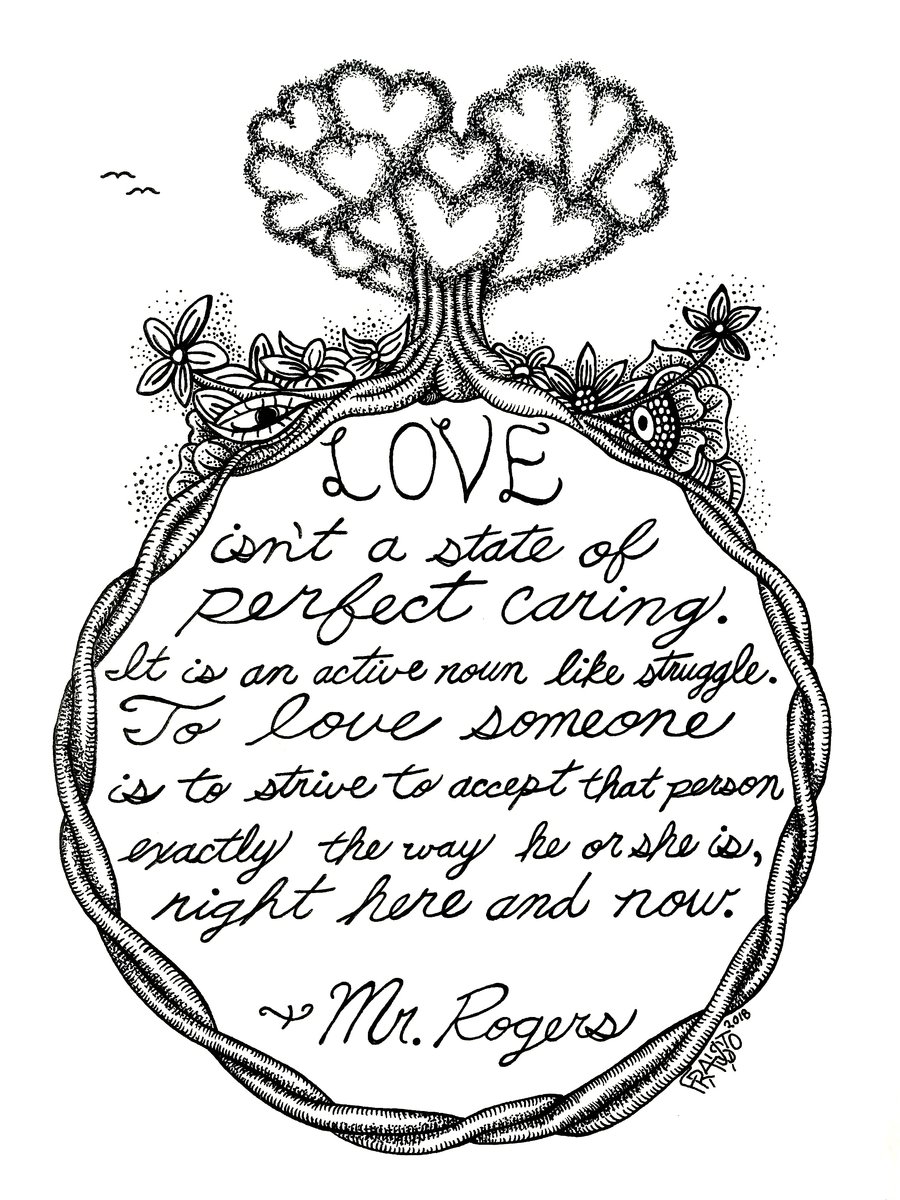 LOVE
isn't a state of
perfect caring.
It is an active noun like struggle.
To love someone
is to strive to accept that person
exactly the way he or she is,
right here and now.
Mr. Rogers
2018